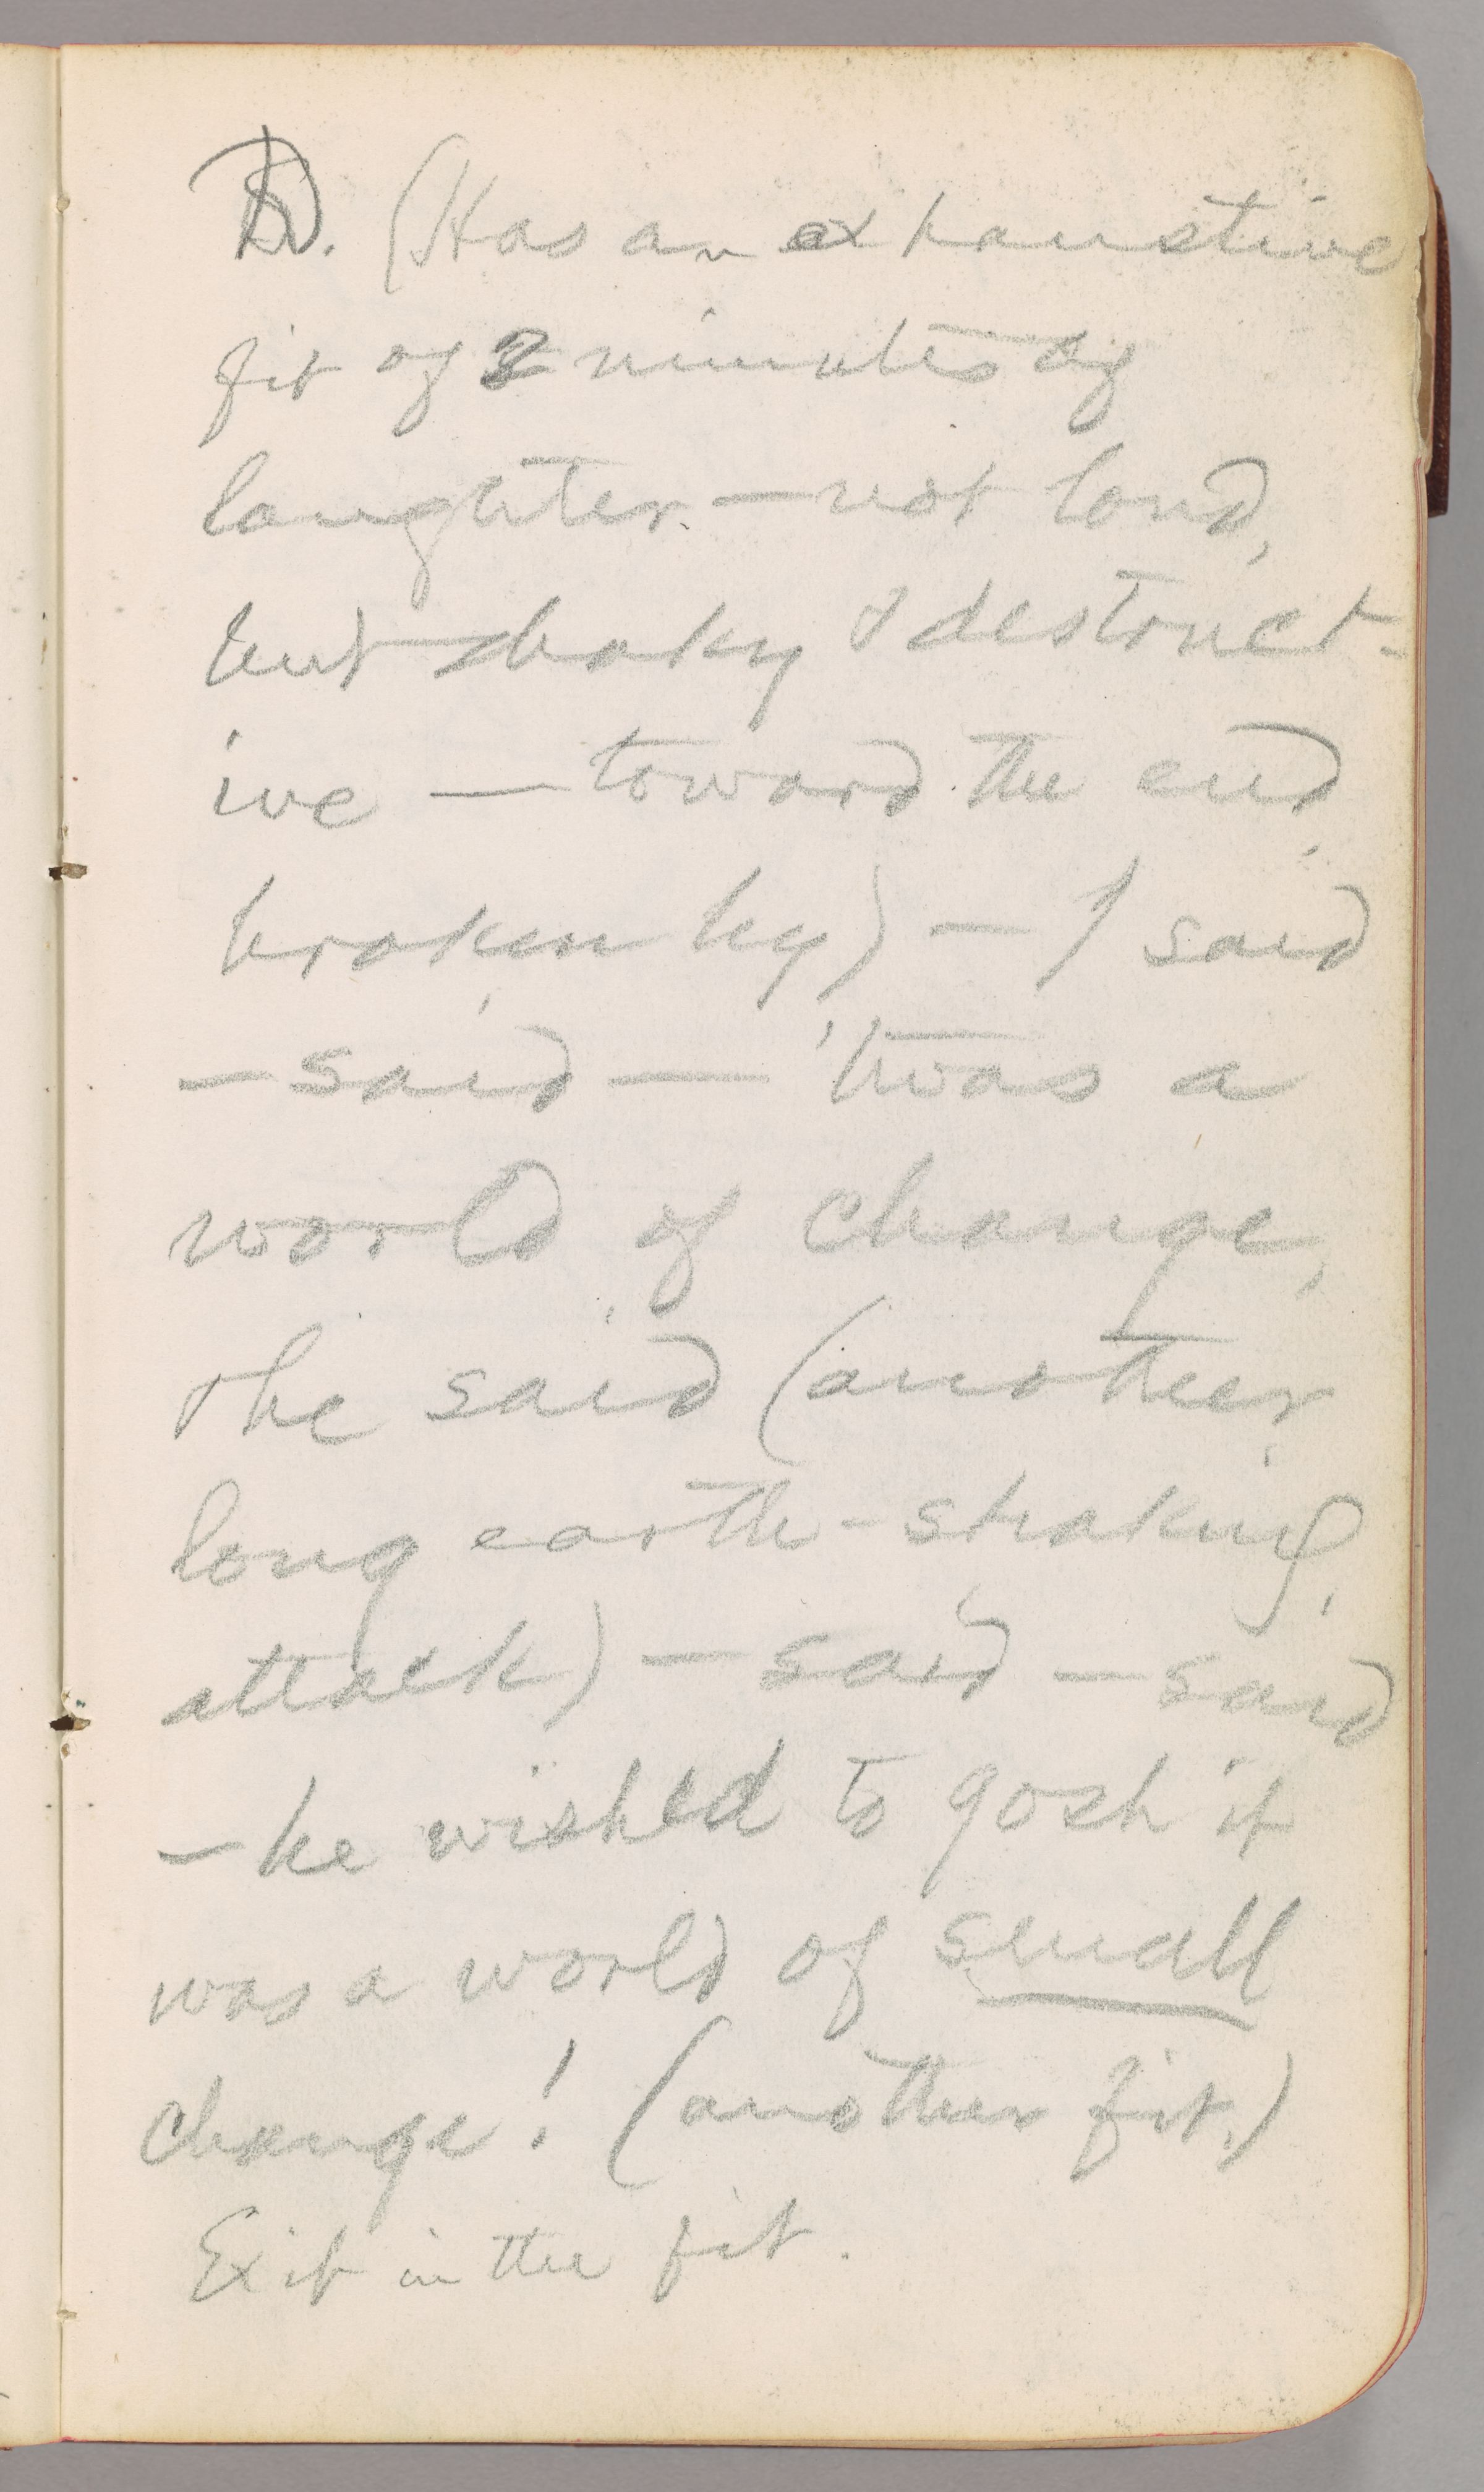 D. (Has an exhaustive
fit of 2 minutes of
laughter—not loud,
but shaky & destruct-
ive — toward the end,
broken by) — I said
— said — 'twas a
world of change,
& he said (another
long earth-shaking
attack) — said — said
— he wished to gosh it
was a world of small
change! (another fit.)
Exit in the fit.